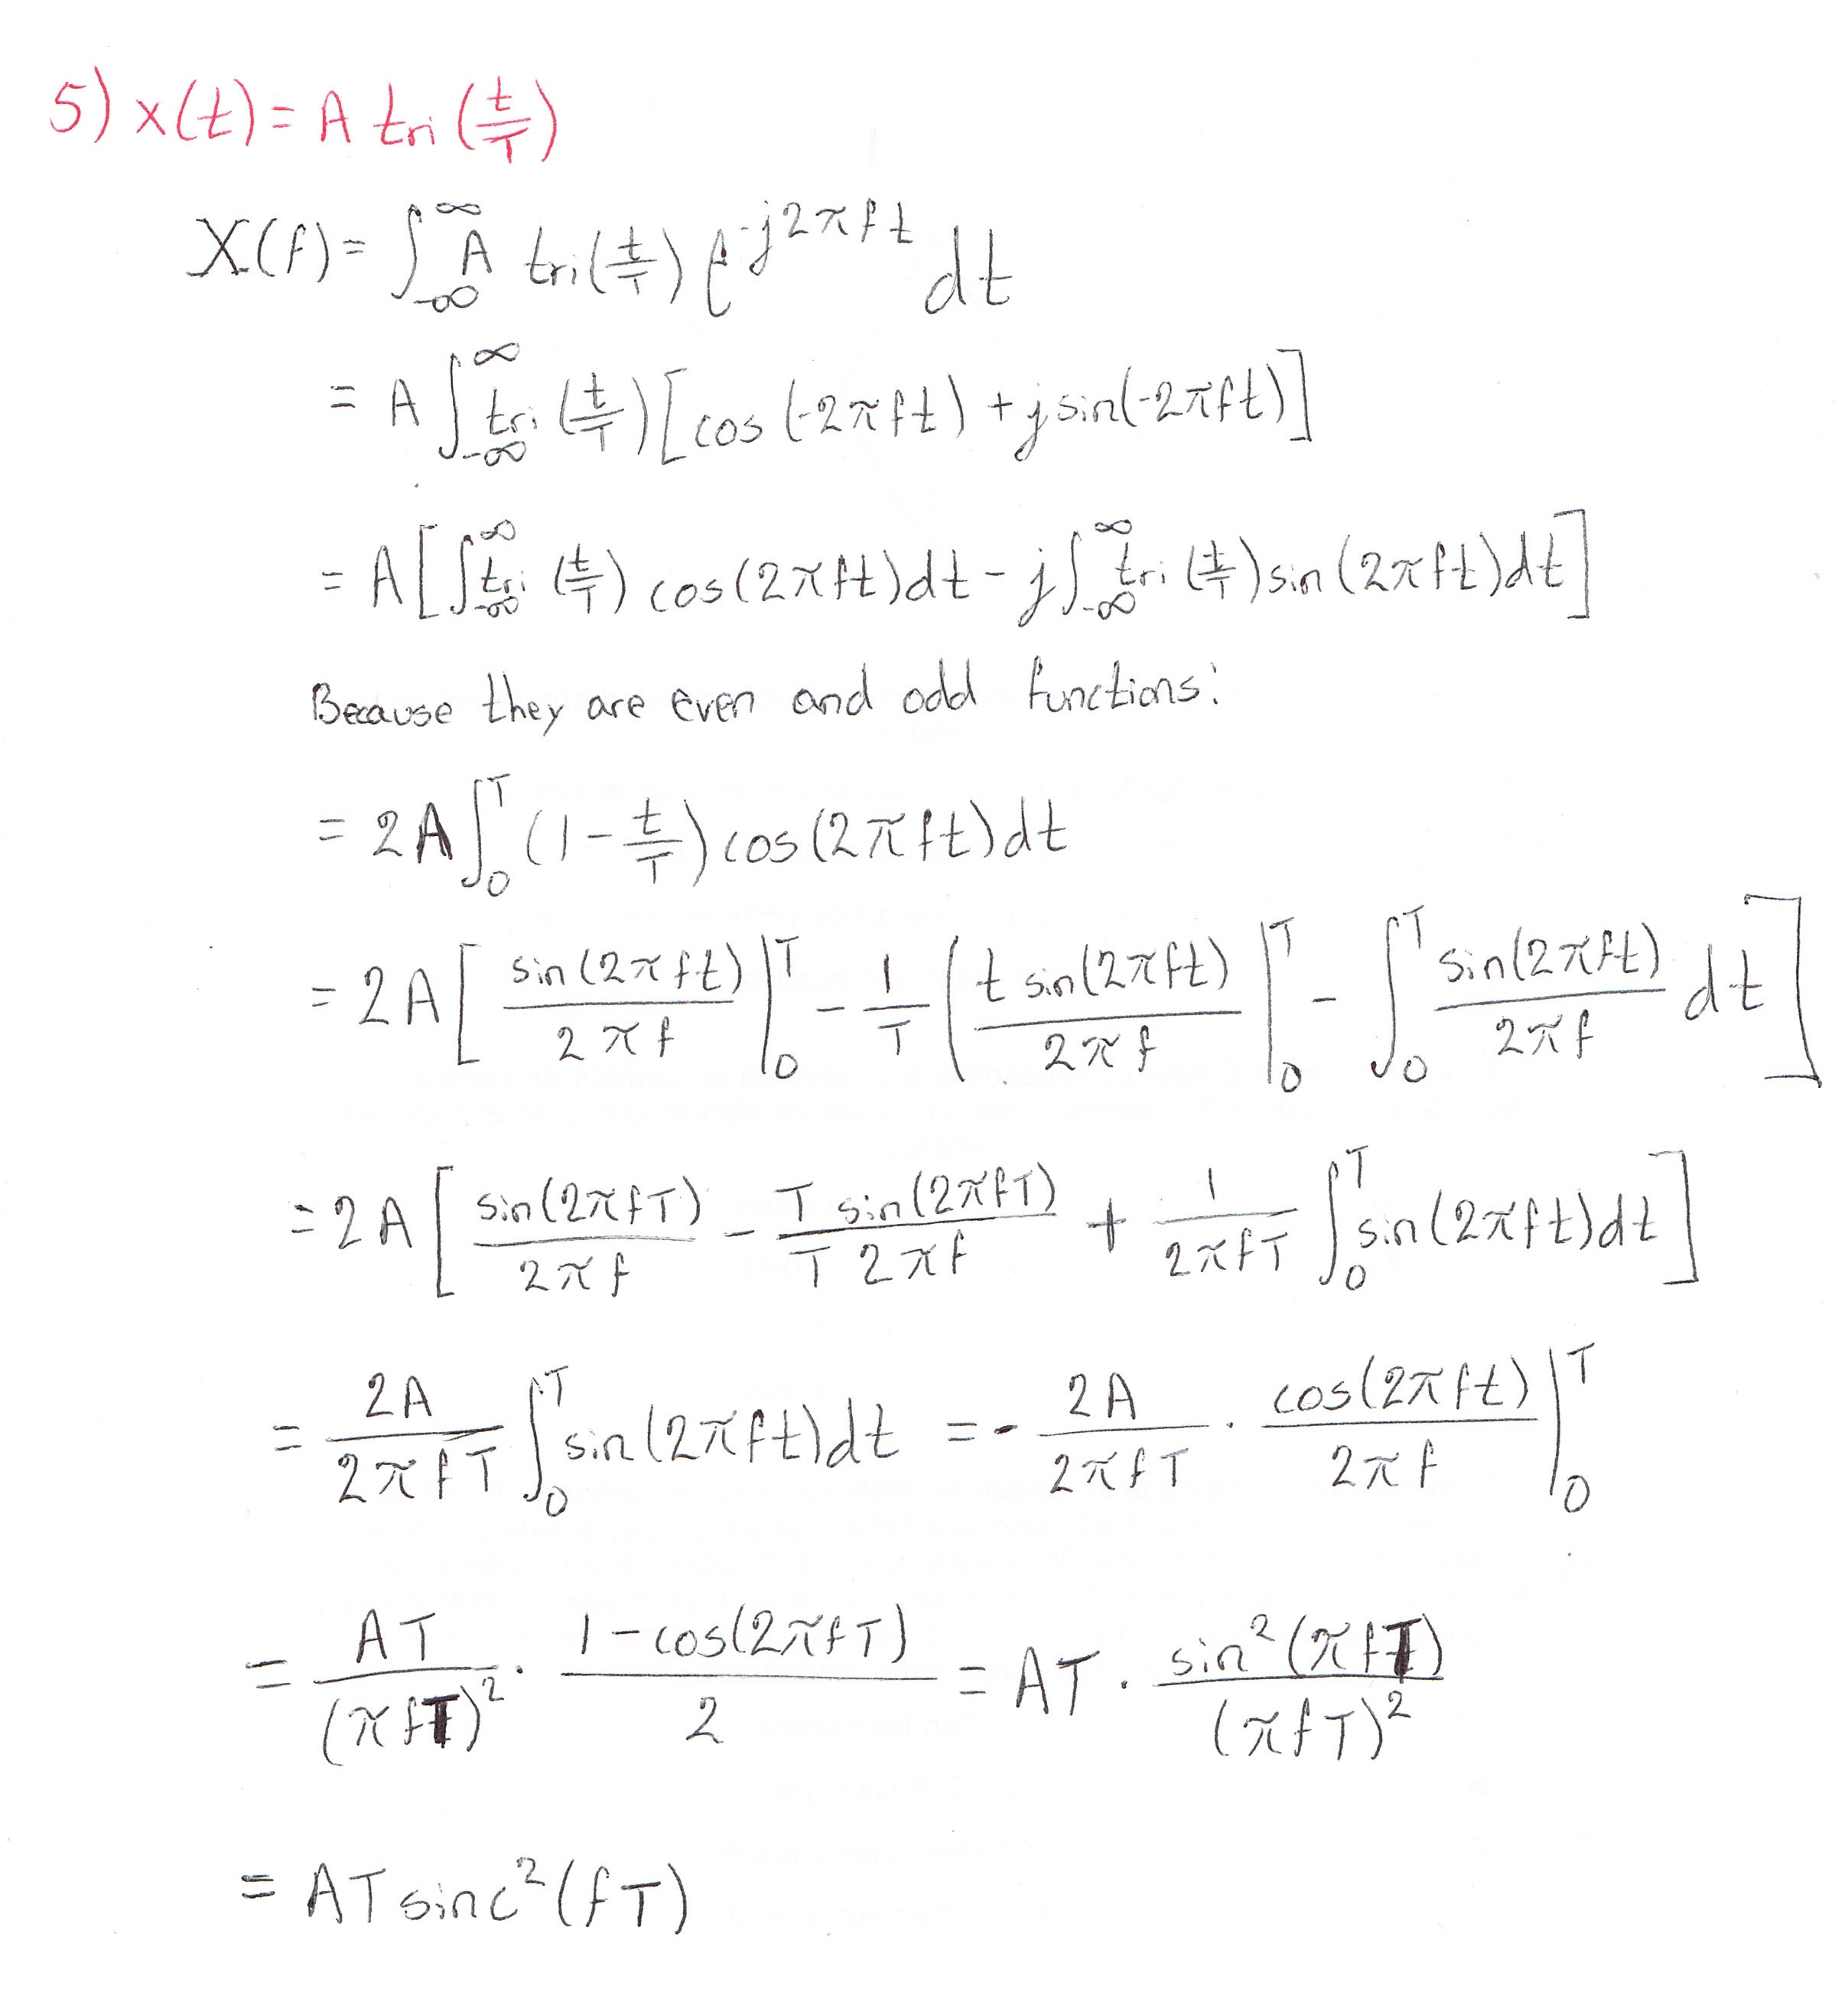 5) x(t) = A tri(t/T)
X(f) = ∫_{-∞}^{∞} A tri(t/T) e^{-j2πft} dt
= A ∫_{-∞}^{∞} tri(t/T) [cos(-2πft) + j sin(-2πft)]
= A [∫_{-∞}^{∞} tri(t/T) cos(2πft)dt - j∫_{-∞}^{∞} tri(t/T) sin(2πft)dt]
Because they are even and odd functions:
= 2A ∫_0^T (1 - t/T) cos(2πft)dt
= 2A [ sin(2πft)/(2πf) |_0^T - 1/T ( t sin(2πft)/(2πf) |_0^T - ∫_0^T sin(2πft)/(2πf) dt ]
= 2A [ sin(2πfT)/(2πf) - T sin(2πfT)/(T 2πf) + 1/(2πfT) ∫_0^T sin(2πft)dt ]
= 2A/(2πfT) ∫_0^T sin(2πft)dt = - 2A/(2πfT) · cos(2πft)/(2πf) |_0^T
= AT/(πfT)² · (1 - cos(2πfT))/2 = AT · sin²(πfT)/(πfT)²
= AT sinc²(fT)